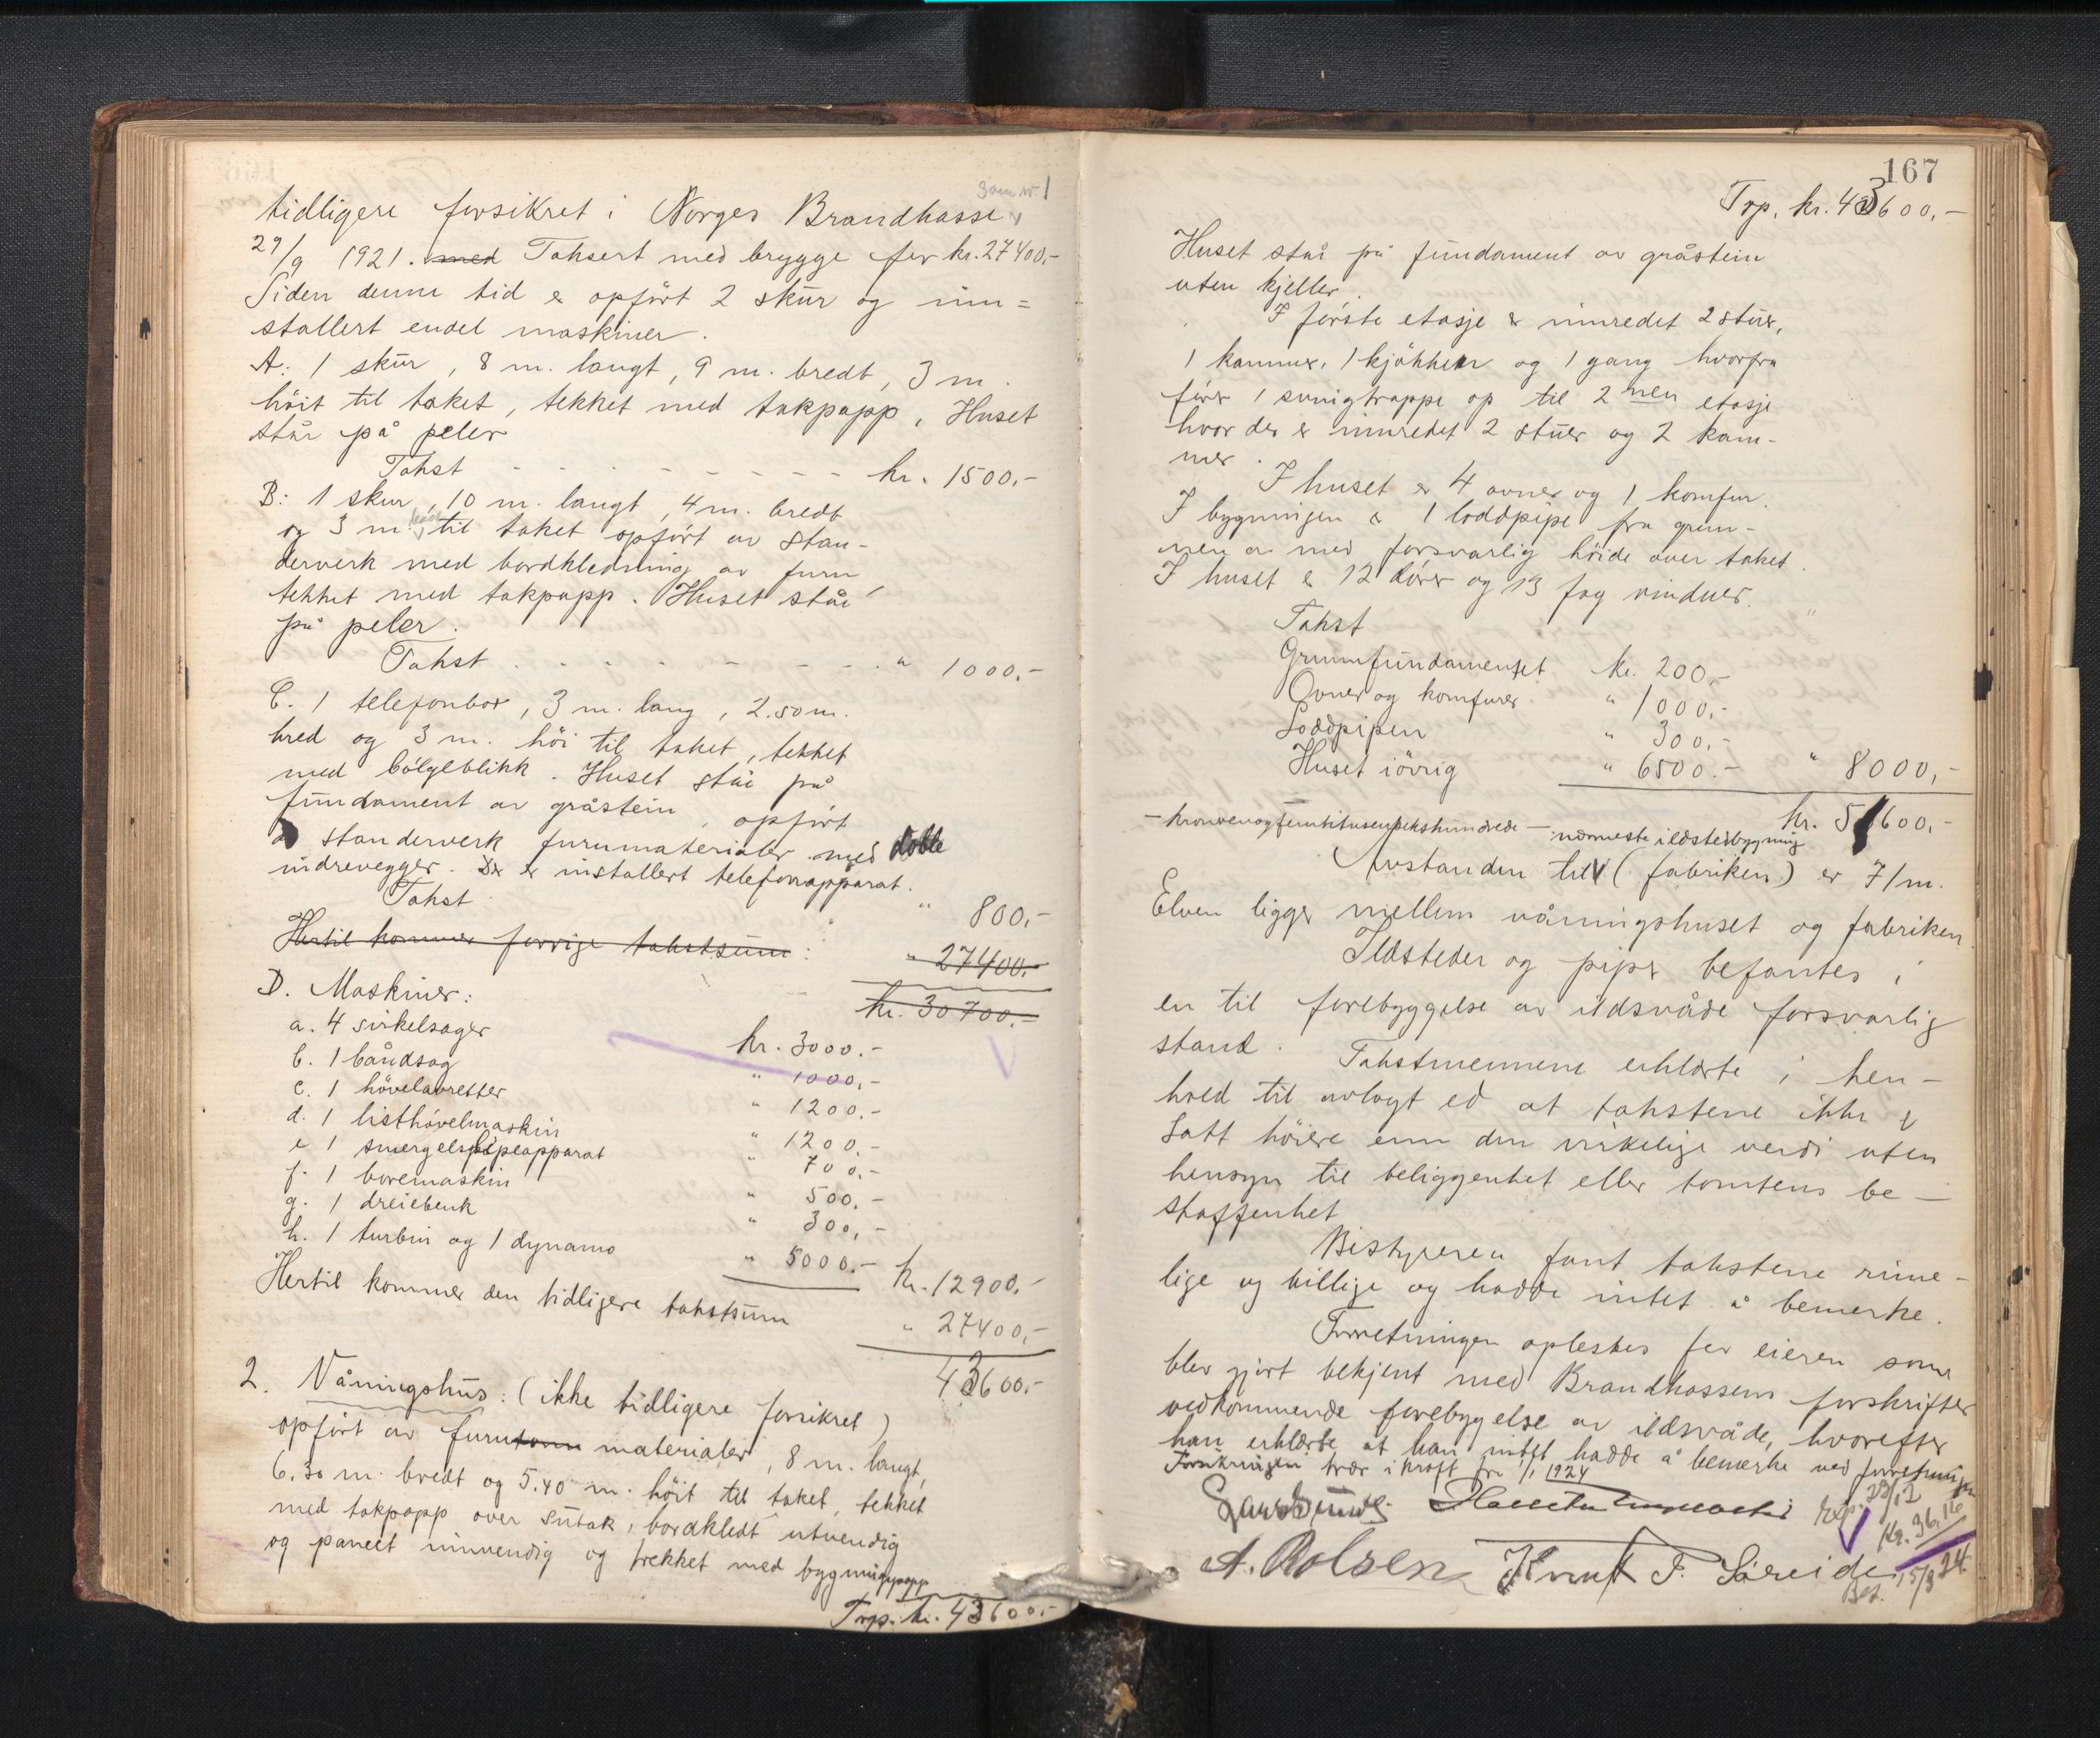 tidligere forsikret i Norges Brandkasse
29/9 1921. med Taksert med brygge for kr. 27400,-
Siden denne tid er opført 2 skur og inn=
stallert endel maskiner.
A: 1 skur, 8 m. langt, 9 m. bredt, 3 m.
höit til taket, tekket med takpapp, Huset
står på peler
Takst - - - - - - - - - kr. 1500,-
B: 1 skur, 10 m. langt, 4 m. bredt
og 3 m. til taket opført av stan-
derverk med bordkledning av furu,
tekket med takpapp. Huset står
på peler.
Takst - - - - - - - " 1000,-
C. 1 telefonbox, 3 m. lang, 2.50 m.
bred og 3 m. höi til taket, tekket
med bölgeblikk. Huset står på
fundament av gråstein, opført
standerverk furumaterialer med doble
indrevegger. Der er installert telefonapparat.
Takst " 800,-
Hertil kommer forrige takstsum: " 27400.-
kr. 30700.-
D. Maskiner:
a. 4 sirkelsager kr. 3000.-
b. 1 båndsag " 1000,-
c. 1 hövelavretter " 1200.-
d. 1 listhövelmaskin " 1200.-
e 1 smergelslipeapparat " 700.-
f. 1 boremaskin " 500.-
g. 1 dreiebenk " 300,-
h. 1 turbin og 1 dynamo " 5000.- kr. 12900.-
Hertil kommer den tidligere takstsum " 27400,-
43600.-
2. Våningshus: (ikke tidligere forsikret)
opført av furutømm materialer, 8 m. langt,
6,30 m. bredt og 5.40 m. höit til taket, tekket
med takpapp over sutak, bordkledt utvendig
og panelt innvendig og trekket med bygningspapp
Trp. kr. 43600.-
167
Trp. kr. 43600,-
Huset står på fundament av gråstein
uten kjeller.
I første etasje er innredet 2 stuer,
1 kammer, 1 kjøkken og 1 gang hvorfra
fører 1 svingtrappe op til 2nen etasje
hvor der er innredet 2 stuer og 2 kam-
mer.
I huset er 4 ovner og 1 komfur.
I bygningen er 1 loddpipe fra grun-
nen av med forsvarlig höide over taket.
I huset er 12 dører og 13 fag vinduer.
Takst
Grunnfundamentet kr. 200,-
Ovner og komfurer " 1000,-
Loddpipen " 300,-
Huset iövrig " 6500.- " 8000,-
kr. 51600.-
- kronerenogfemtitusensekshundrede - nærmeste ildstedsbygning
Avstanden til (fabriken) er 71 m.
Elven ligger mellem våningshuset og fabriken.
Ildsteder og piper befantes i
en til forebyggelse av ildsvåde forsvarlig
stand. Takstmennene erklærte i hen-
hold til avlagt ed at takstene ikke er
satt höiere enn den virkelige verdi uten
hensyn til beliggenhet eller tomtens be-
skaffenhet
Bestyreren fant takstene rime-
lige og billige og hadde intet å bemerke.
Forretningen oplestes for eieren som
blev gjort bekjent med Brandkassens forskrifter
vedkommende forebyggelse av ildsvåde, hvorefter
han erklærte at han intet hadde å bemerke ved forretningen
Forsikringen trær i kraft fra 1/1 1924
Exp. 29/12
Kr. 36,16
A. Rolsen Knut P. Söreide
Bet. 15/3 24.